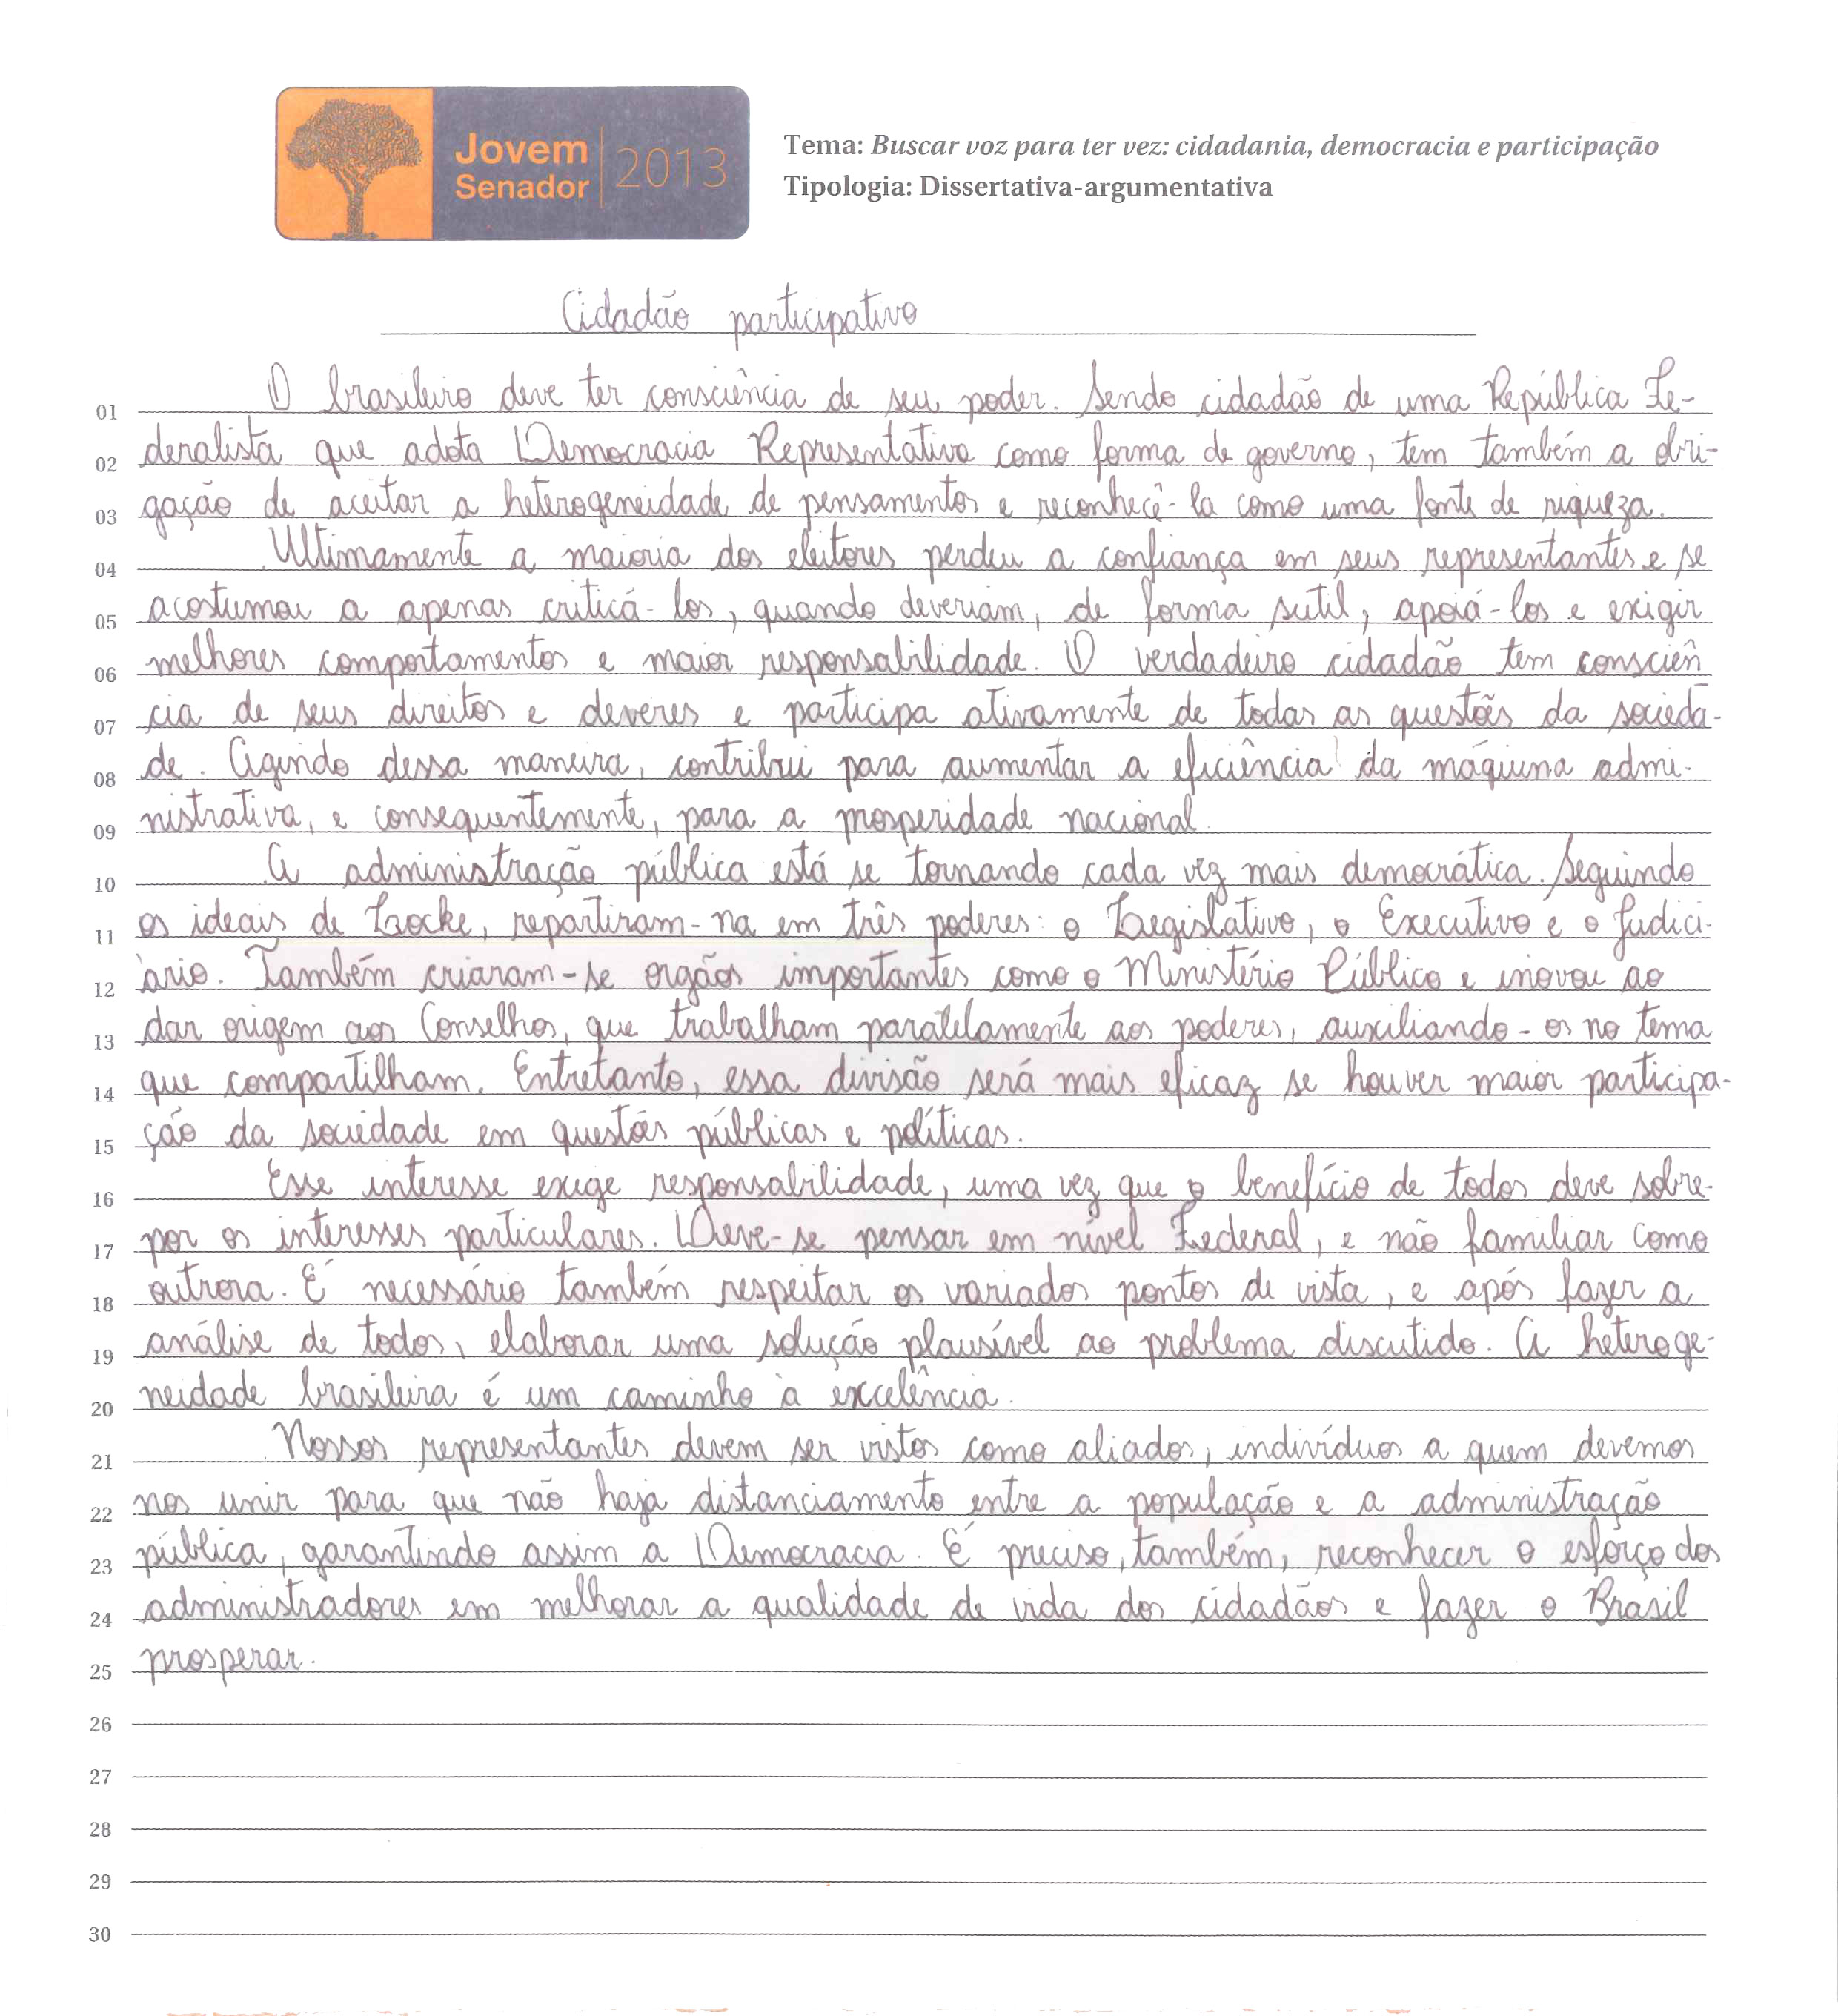 Jovem Senador 2013
Tema: Buscar voz para ter vez: cidadania, democracia e participação
Tipologia: Dissertativa-argumentativa
Cidadão participativo
01 O brasileiro deve ter consciência de seu poder. Sendo cidadão de uma República Fe-
02 deralista que adota Democracia Representativa como forma de governo, tem também a obri-
03 gação de aceitar a heterogeneidade de pensamentos e reconhecê-la como uma fonte de riqueza.
04 Ultimamente a maioria dos eleitores perdeu a confiança em seus representantes e se
05 acostumou a apenas criticá-los, quando deveriam, de forma sutil, apoiá-los e exigir
06 melhores comportamentos e maior responsabilidade. O verdadeiro cidadão tem consciên
07 cia de seus direitos e deveres e participa ativamente de todas as questões da socieda-
08 de. Agindo dessa maneira, contribui para aumentar a eficiência da máquina admi-
09 nistrativa, e consequentemente, para a prosperidade nacional.
10 A administração pública está se tornando cada vez mais democrática. Seguindo
11 os ideais de Locke, repartiram-na em três poderes: o Legislativo, o Executivo e o Judici-
12 ário. Também criaram-se orgãos importantes como o Ministério Público e inovou ao
13 dar origem aos Conselhos, que trabalham paralelamente aos poderes, auxiliando-os no tema
14 que compartilham. Entretanto, essa divisão será mais eficaz se houver maior participa-
15 ção da sociedade em questões públicas e políticas.
16 Esse interesse exige responsabilidade, uma vez que o benefício de todos deve sobre-
17 por os interesses particulares. Deve-se pensar em nível Federal, e não familiar como
18 outrora. É necessário também respeitar os variados pontos de vista, e após fazer a
19 análise de todos, elaborar uma solução plausível ao problema discutido. A heteroge-
20 neidade brasileira é um caminho à excelência.
21 Nossos representantes devem ser vistos como aliados, indivíduos a quem devemos
22 nos unir para que não haja distanciamento entre a população e a administração
23 pública, garantindo assim a Democracia. É preciso, também, reconhecer o esforço dos
24 administradores em melhorar a qualidade de vida dos cidadãos e fazer o Brasil
25 prosperar.
26
27
28
29
30